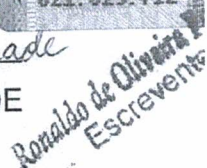 ade
DE
Ronaldo de Oliveira
Escrevente